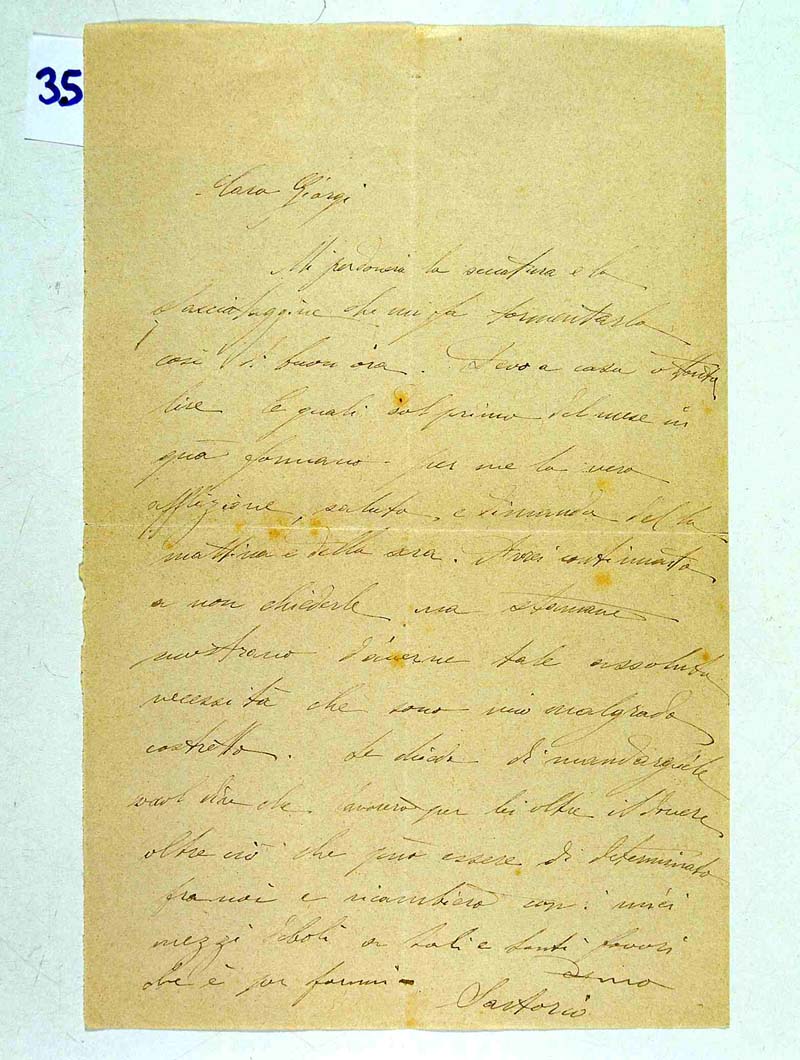 35
Caro Giorgi
Mi perdonerà la seccatura e la
che mi fa tormentarla
così di buon'ora. Devo a casa
lire le quali dal primo del mese in
quà formano per me la vera
afflizione, saluto, e dimanda della
mattina e della sera. Avrei continuato
a non chiederle ma stamane
mostrano d'averne tale assoluta
necessità che sono mio malgrado
costretto. Le chiedo di mandargliele
vuol dire che lavorerò per lei oltre il dovere
oltre ciò che può essere di determinato
fra noi e ricambierò con i miei
mezzi deboli a tali e tanti favori
che è per farmi
Suo
Sartorio